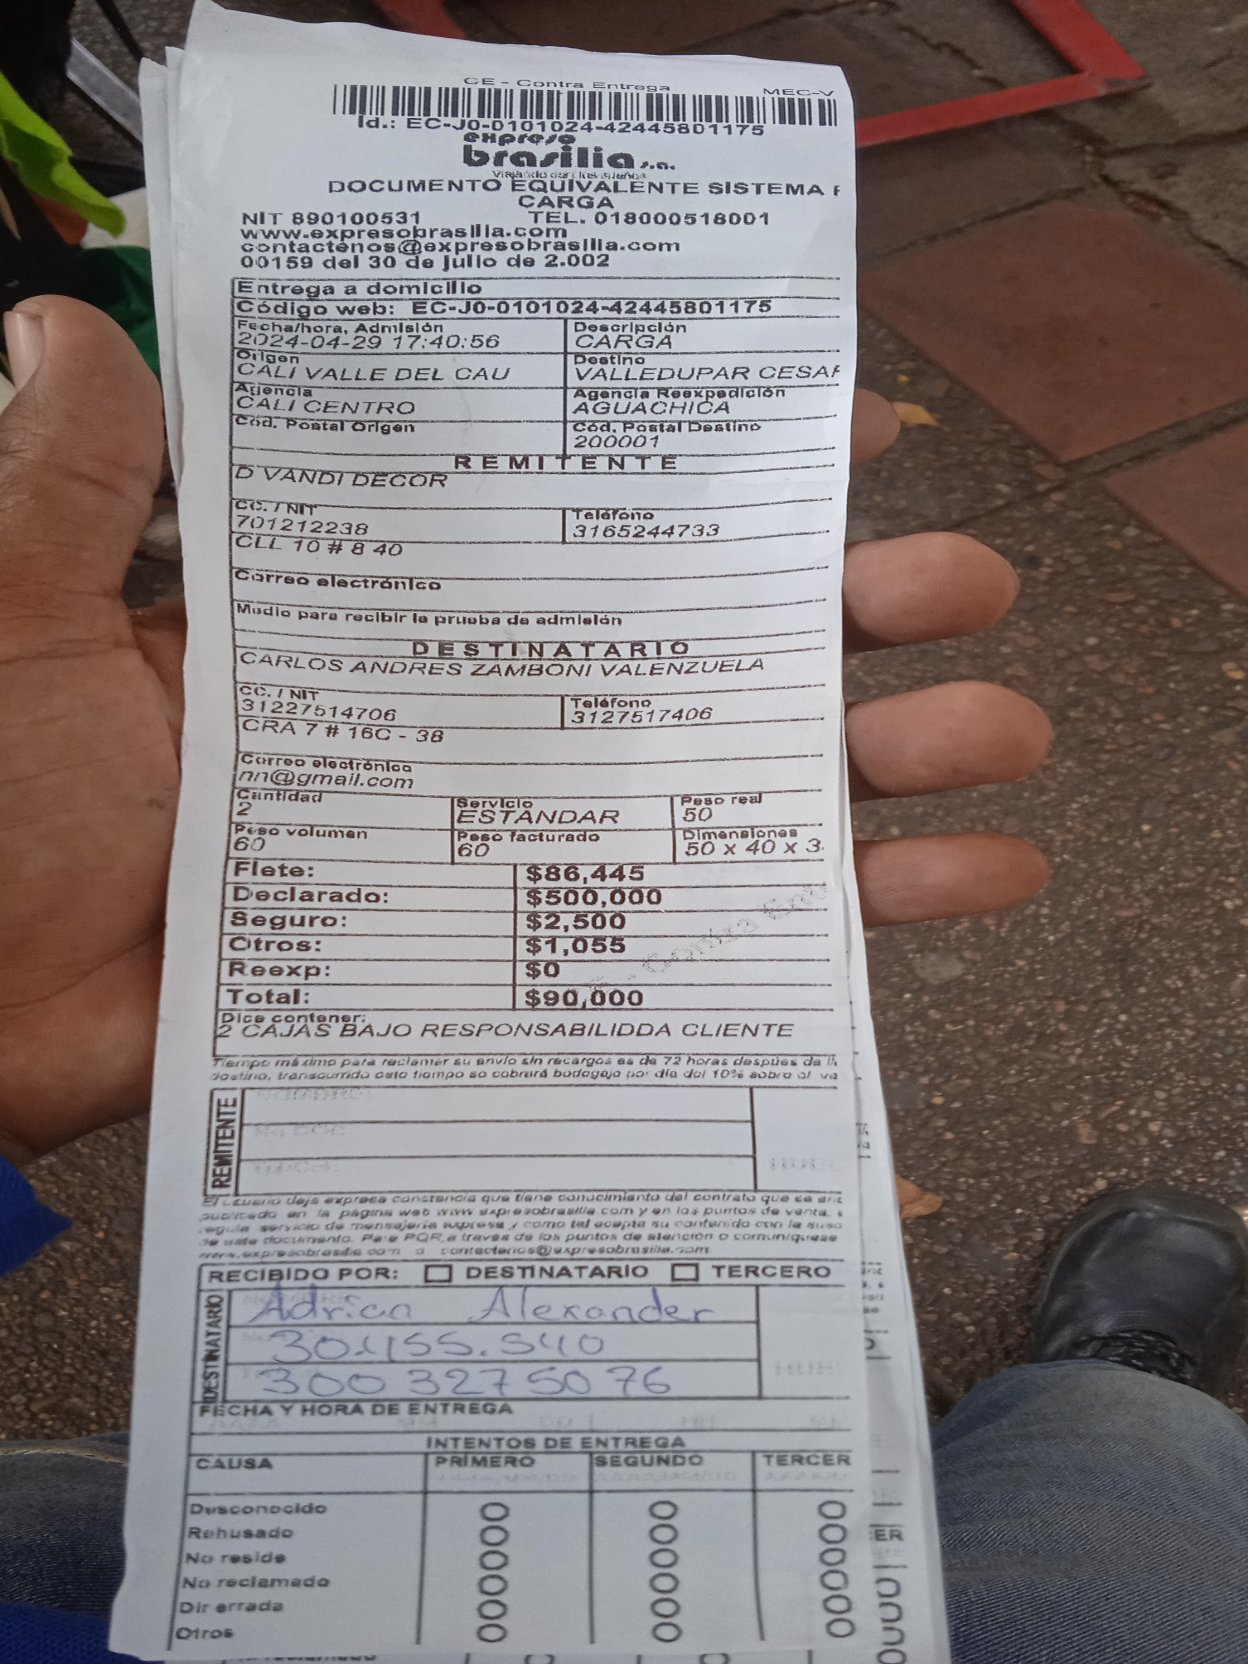 CE - Contra Entrega MEC-V
Id.: EC-J0-0101024-42445801175
expreso
brasilia s.a.
DOCUMENTO EQUIVALENTE SISTEMA
CARGA
NIT 890100531 TEL. 018000518001
www.expresobrasilia.com
contactenos@expresobrasilia.com
00159 del 30 de julio de 2.002
Entrega a domicilio
Código web: EC-J0-0101024-42445801175
Fecha/hora, Admisión Descripción
2024-04-29 17:40:56 CARGA
Origen Destino
CALI VALLE DEL CAU VALLEDUPAR CESAR
Agencia Agencia Reexpedición
CALI CENTRO AGUACHICA
Cód. Postal Origen Cód. Postal Destino
200001
REMITENTE
D VANDI DECOR
CC. / NIT Teléfono
701212238 3165244733
CLL 10 # 8 40
Correo electrónico
Medio para recibir la prueba de admisión
DESTINATARIO
CARLOS ANDRES ZAMBONI VALENZUELA
CC. / NIT Teléfono
31227514706 3127517406
CRA 7 # 16C - 38
Correo electrónico
nn@gmail.com
Cantidad Servicio Peso real
2 ESTANDAR 50
Peso volumen Peso facturado Dimensiones
60 60 50 x 40 x 3
Flete: $86,445
Declarado: $500,000
Seguro: $2,500
Otros: $1,055
Reexp: $0
Total: $90,000
Dice contener:
2 CAJAS BAJO RESPONSABILIDDA CLIENTE
Tiempo máximo para reclamar su envío sin recargos es de 72 horas después de
destino, transcurrido este tiempo se cobrará bodegaje por día del 10% sobre el va
REMITENTE
El usuario deja expresa constancia que tiene conocimiento del contrato que se
publicado en la página web www.expresobrasilia.com y en los puntos de venta,
regula servicio de mensajería expresa y como tal acepta su contenido con la
de este documento. Para PQR a través de los puntos de atención o comuníquese
www.expresobrasilia.com o contactenos@expresobrasilia.com
RECIBIDO POR: DESTINATARIO TERCERO
DESTINATARIO
Adrian Alexander
30.455.540
300 3275076
FECHA Y HORA DE ENTREGA
INTENTOS DE ENTREGA
CAUSA PRIMERO SEGUNDO TERCER
Desconocido
Rehusado
No reside
No reclamado
Dir errada
Otros